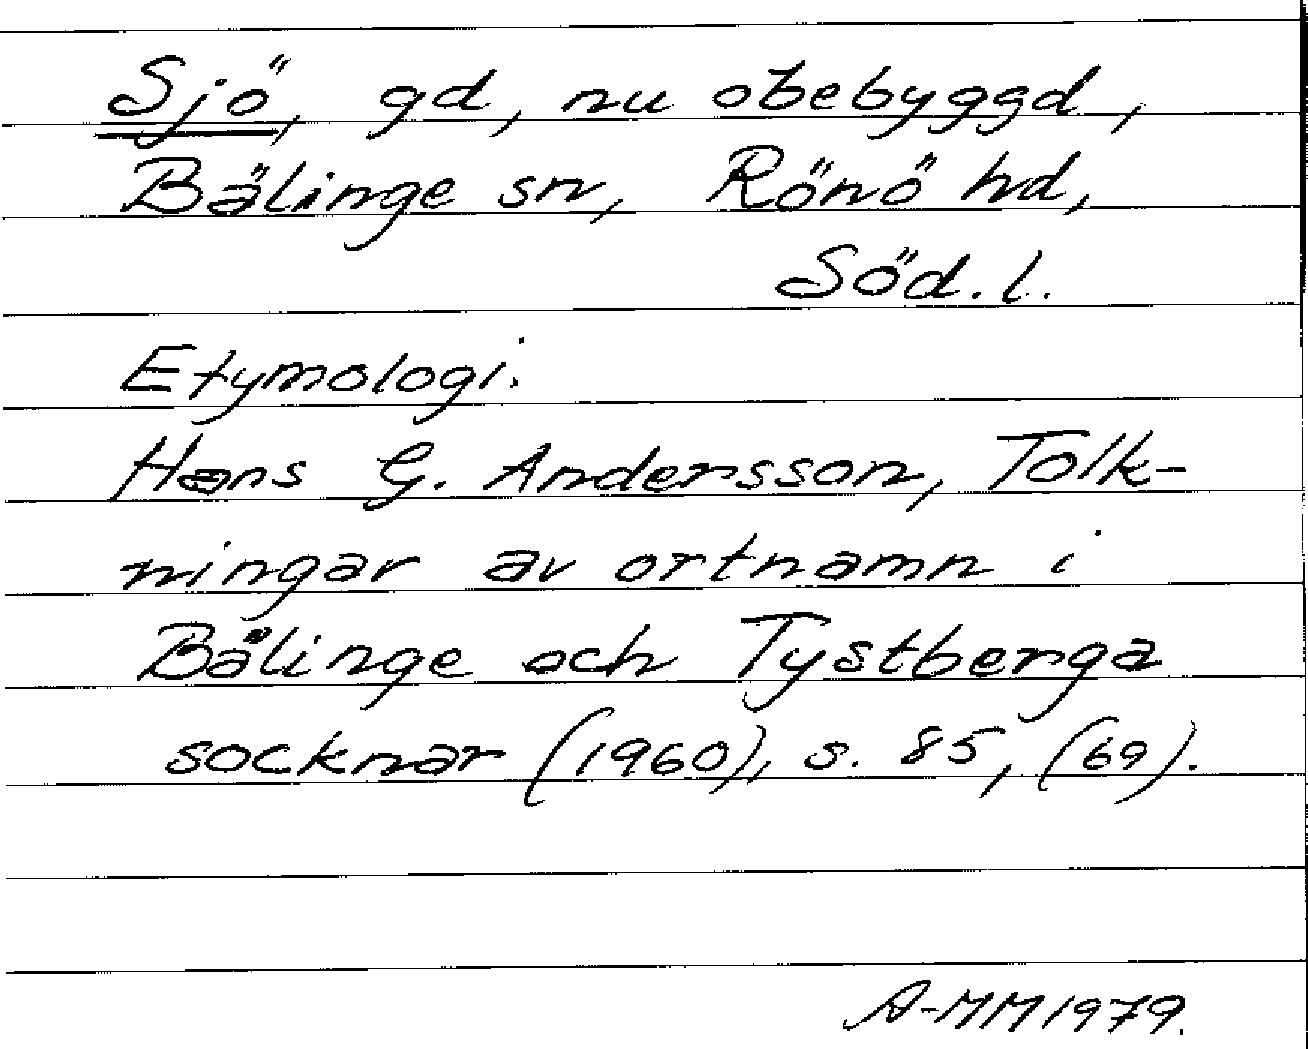 Sjö, gd, nu obebyggd,
Bälinge sn, Rönö hd,
Söd.l.
Etymologi:
Hans G. Andersson, Tolk-
ningar av ortnamn i
Bälinge och Tystberga
socknar (1960), s. 85, (69).
A-MM 1979.